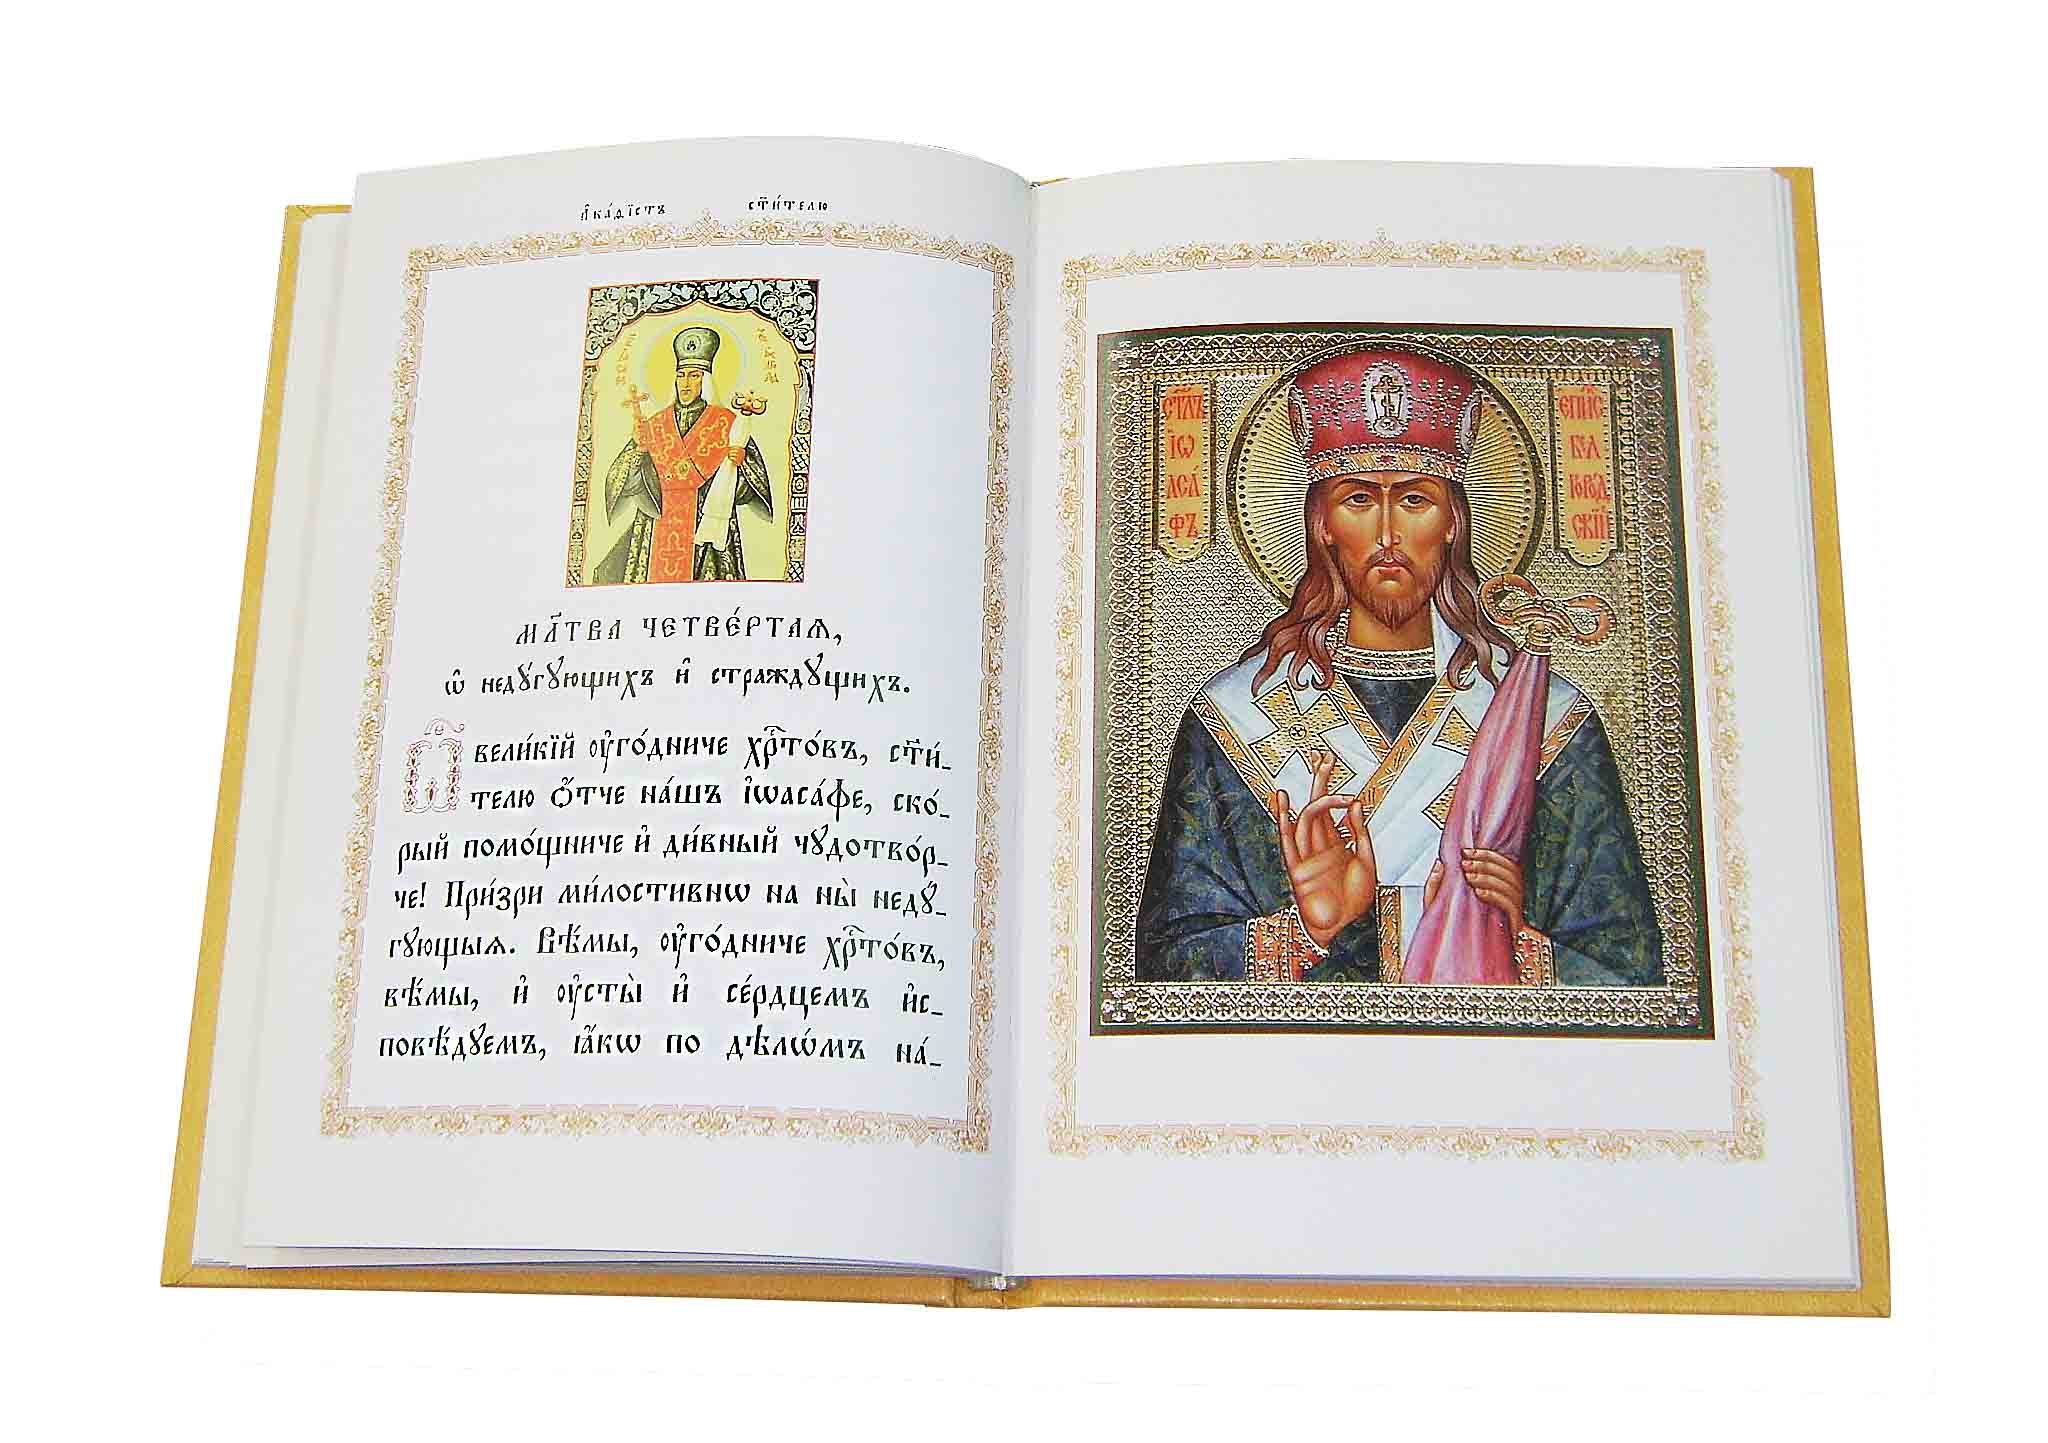 А҆ка́ѳїстъ ст҃и́телю
МЛ҃ТВА ЧЕТВЕ́РТАѦ,
ѡ҆ недꙋ́гꙋющихъ и҆ стра́ждꙋщихъ.
Ѽ вели́кїй ᲂу҆го́дниче хрⷭ҇то́въ, ст҃и́-
телю ѻ҆́тче на́шъ і҆ѡаса́фе, ско́-
рый помо́щниче и҆ ди́вный чꙋдотво́р-
че! При́зри ми́лостивнѡ на ны̀ недꙋ́-
гꙋющыѧ. Вѣ́мы, ᲂу҆го́дниче хрⷭ҇то́въ,
вѣ́мы, и҆ ᲂу҆сты̀ и҆ се́рдцемъ и҆с-
повѣ́дꙋемъ, ꙗ҆́кѡ по дѣлѡ́мъ на́-
СТ҃ЛЬ
ІѠ
АСА
ФЪ
ЕПИⷭ҇
БЕЛ
ГОРОД
СКІЙ